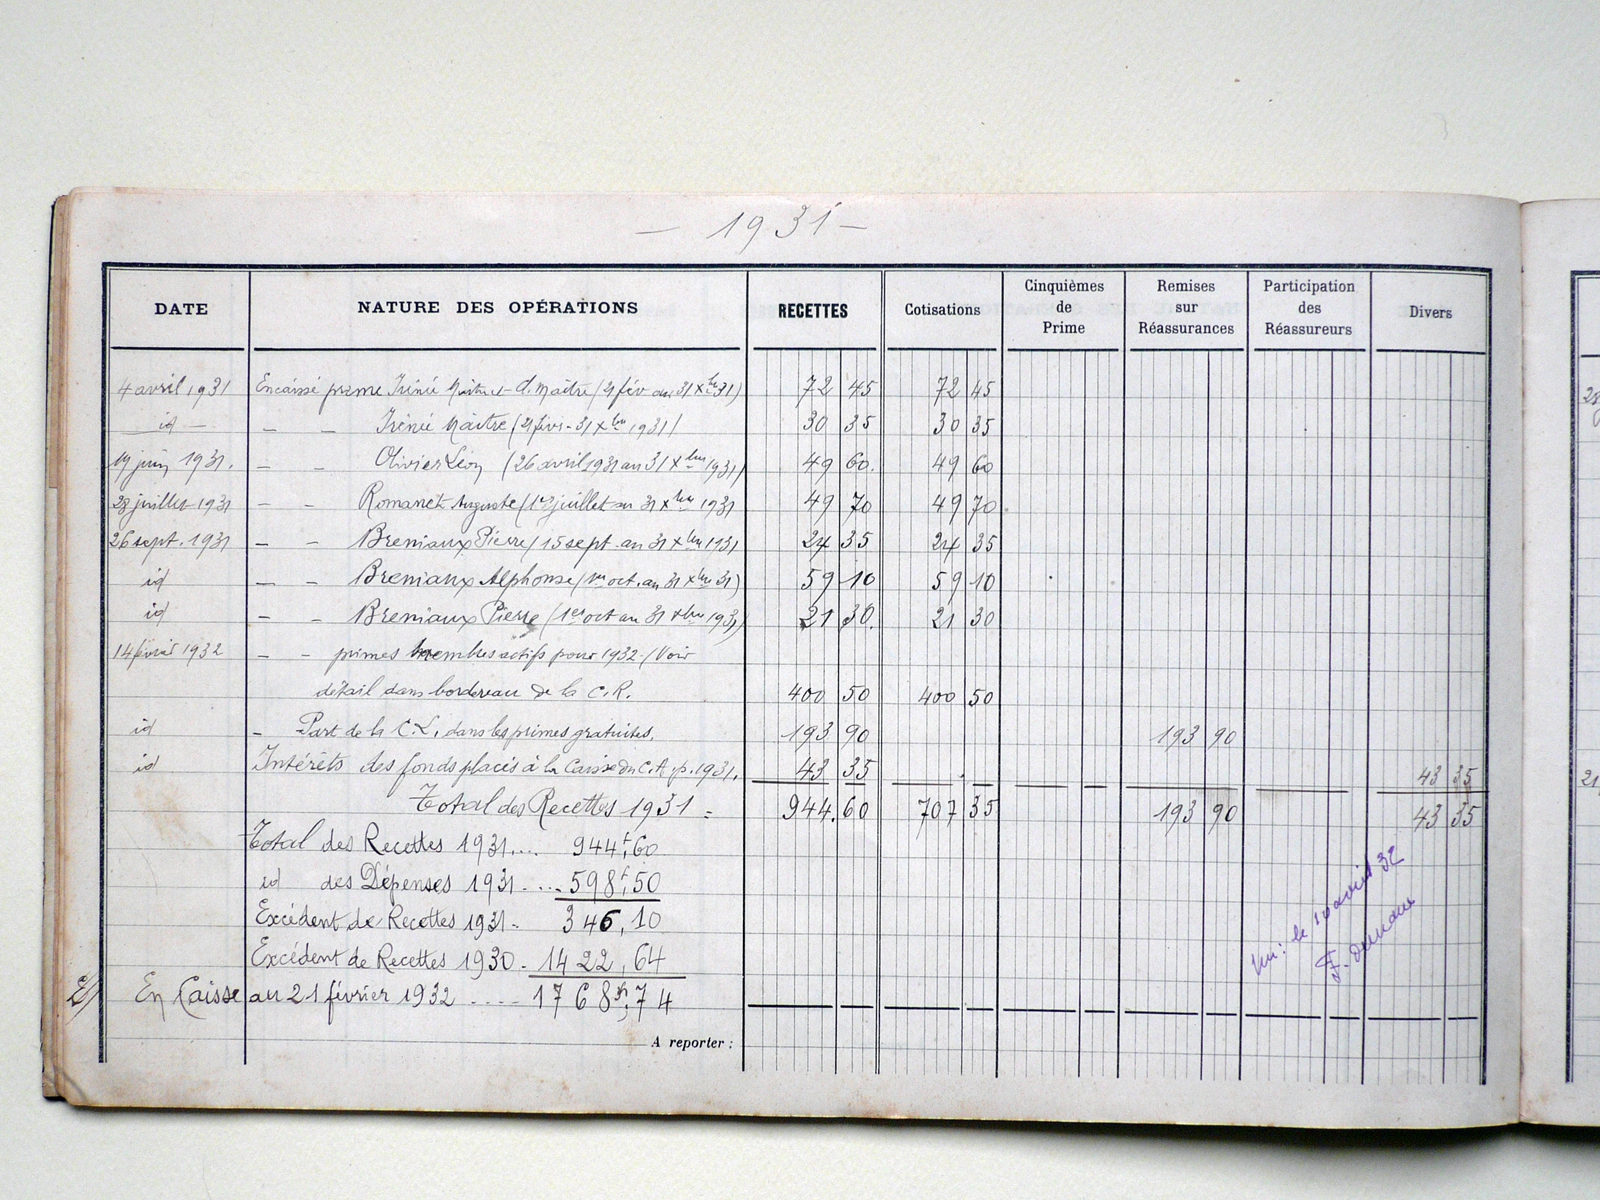 - 1931 -
DATE NATURE DES OPÉRATIONS RECETTES Cotisations Cinquièmes de Prime Remises sur Réassurances Participation des Réassureurs Divers
4 avril 1931 Encaissé prime Irénée Maitre et d. Maître (21 fév au 31 Xbre 31) 72 45 72 45
id - - Irénée Maître (21 févr - 31 Xbre 1931) 30 35 30 35
juin 1931. - - Olivier Léon (26 avril 1931 au 31 Xbre 1931) 49 60. 49 60
28 juillet 1931 - - Romanet Auguste (1er juillet au 31 Xbre 1931 49 70 49 70
26 sept. 1931 - - Breniaux Pierre (15 sept. au 31 Xbre 1931 24 35 24 35
id - - Breniaux Alphonse (1er oct. au 31 Xbre 31) 59 10 59 10
id - - Breniaux Pierre (1er oct au 31 Xbre 1931) 21 30. 21 30
14 février 1932 - - primes membres actifs pour 1932 - (Voir
détail dans bordereau de la C.R. 400 50 400 50
id - Part de la C.L. dans les primes gratuites. 193 90 193 90
id Intérêts des fonds placés à la Caisse du C.A. p. 1931. 43 35 43 35
Total des Recettes 1931 = 944.60 707 35 193 90 43 35
Total des Recettes 1931.... 944f,60
id des Dépenses 1931..... 598f,50
Excédent de Recettes 1931- 346,10
Excédent de Recettes 1930- 1422,64
En Caisse au 21 février 1932 ..... 1768fr,74
A reporter :
Vu: le 10 avril 32